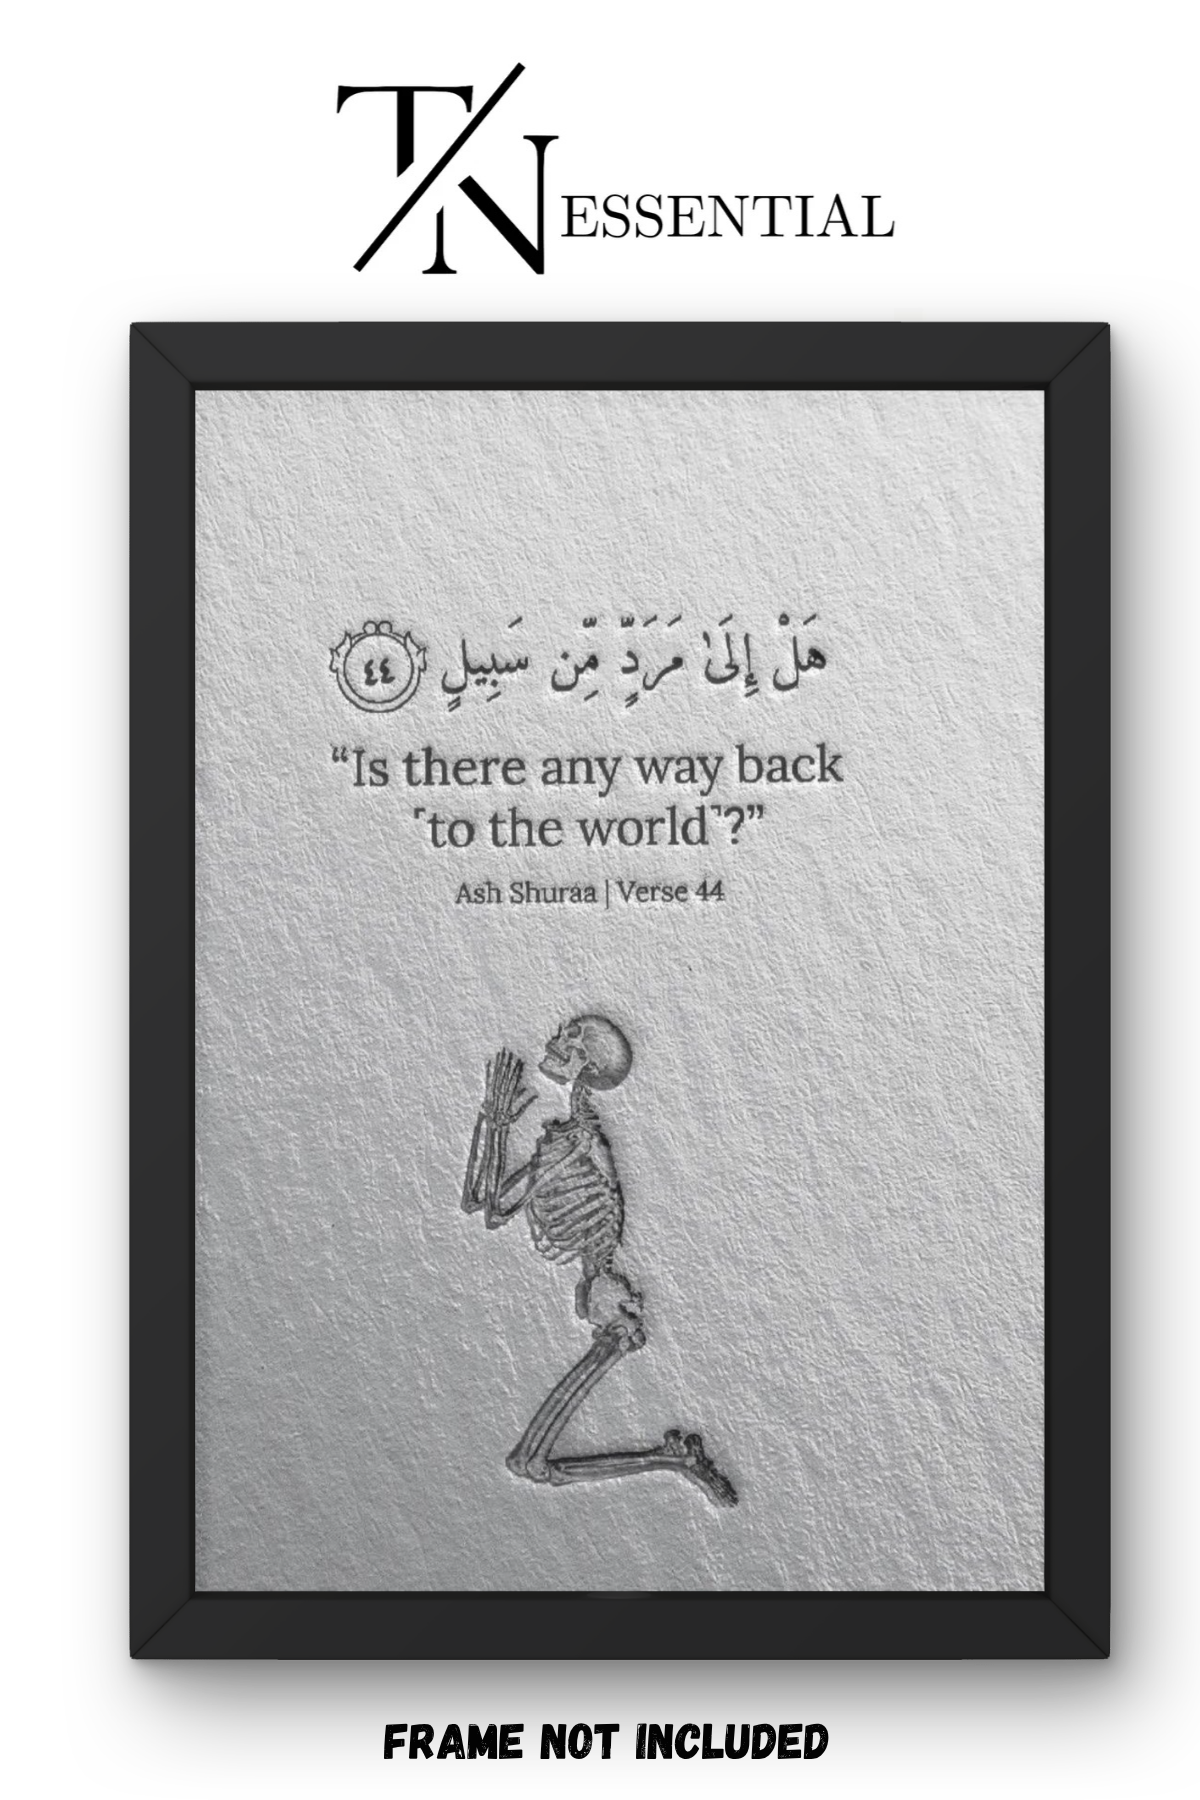 TN ESSENTIAL
هَلْ إِلَىٰ مَرَدٍّ مِّن سَبِيلٍ ٤٤
“Is there any way back
⸢to the world⸣?”
Ash Shuraa | Verse 44
FRAME NOT INCLUDED